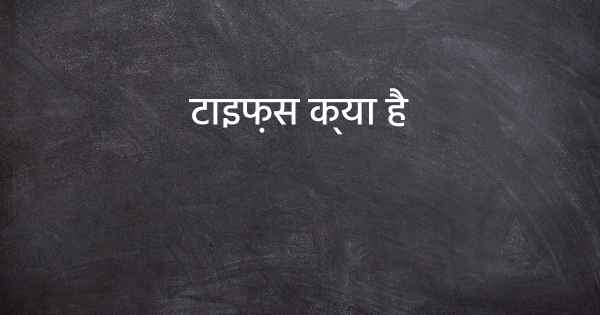 टाइफ़स क्या है